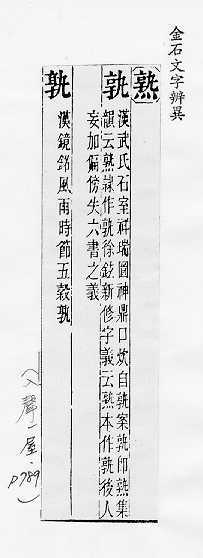 金石文字辨異
熟
孰 漢武氏石室祥瑞圖神鼎口炊自孰案孰即熟集
韻云熟隸作孰徐鉉新修字義云熟本作孰後人
妄加偏傍失六書之義
孰 漢鏡銘風雨時節五穀孰
(入聲.屋.
p789)